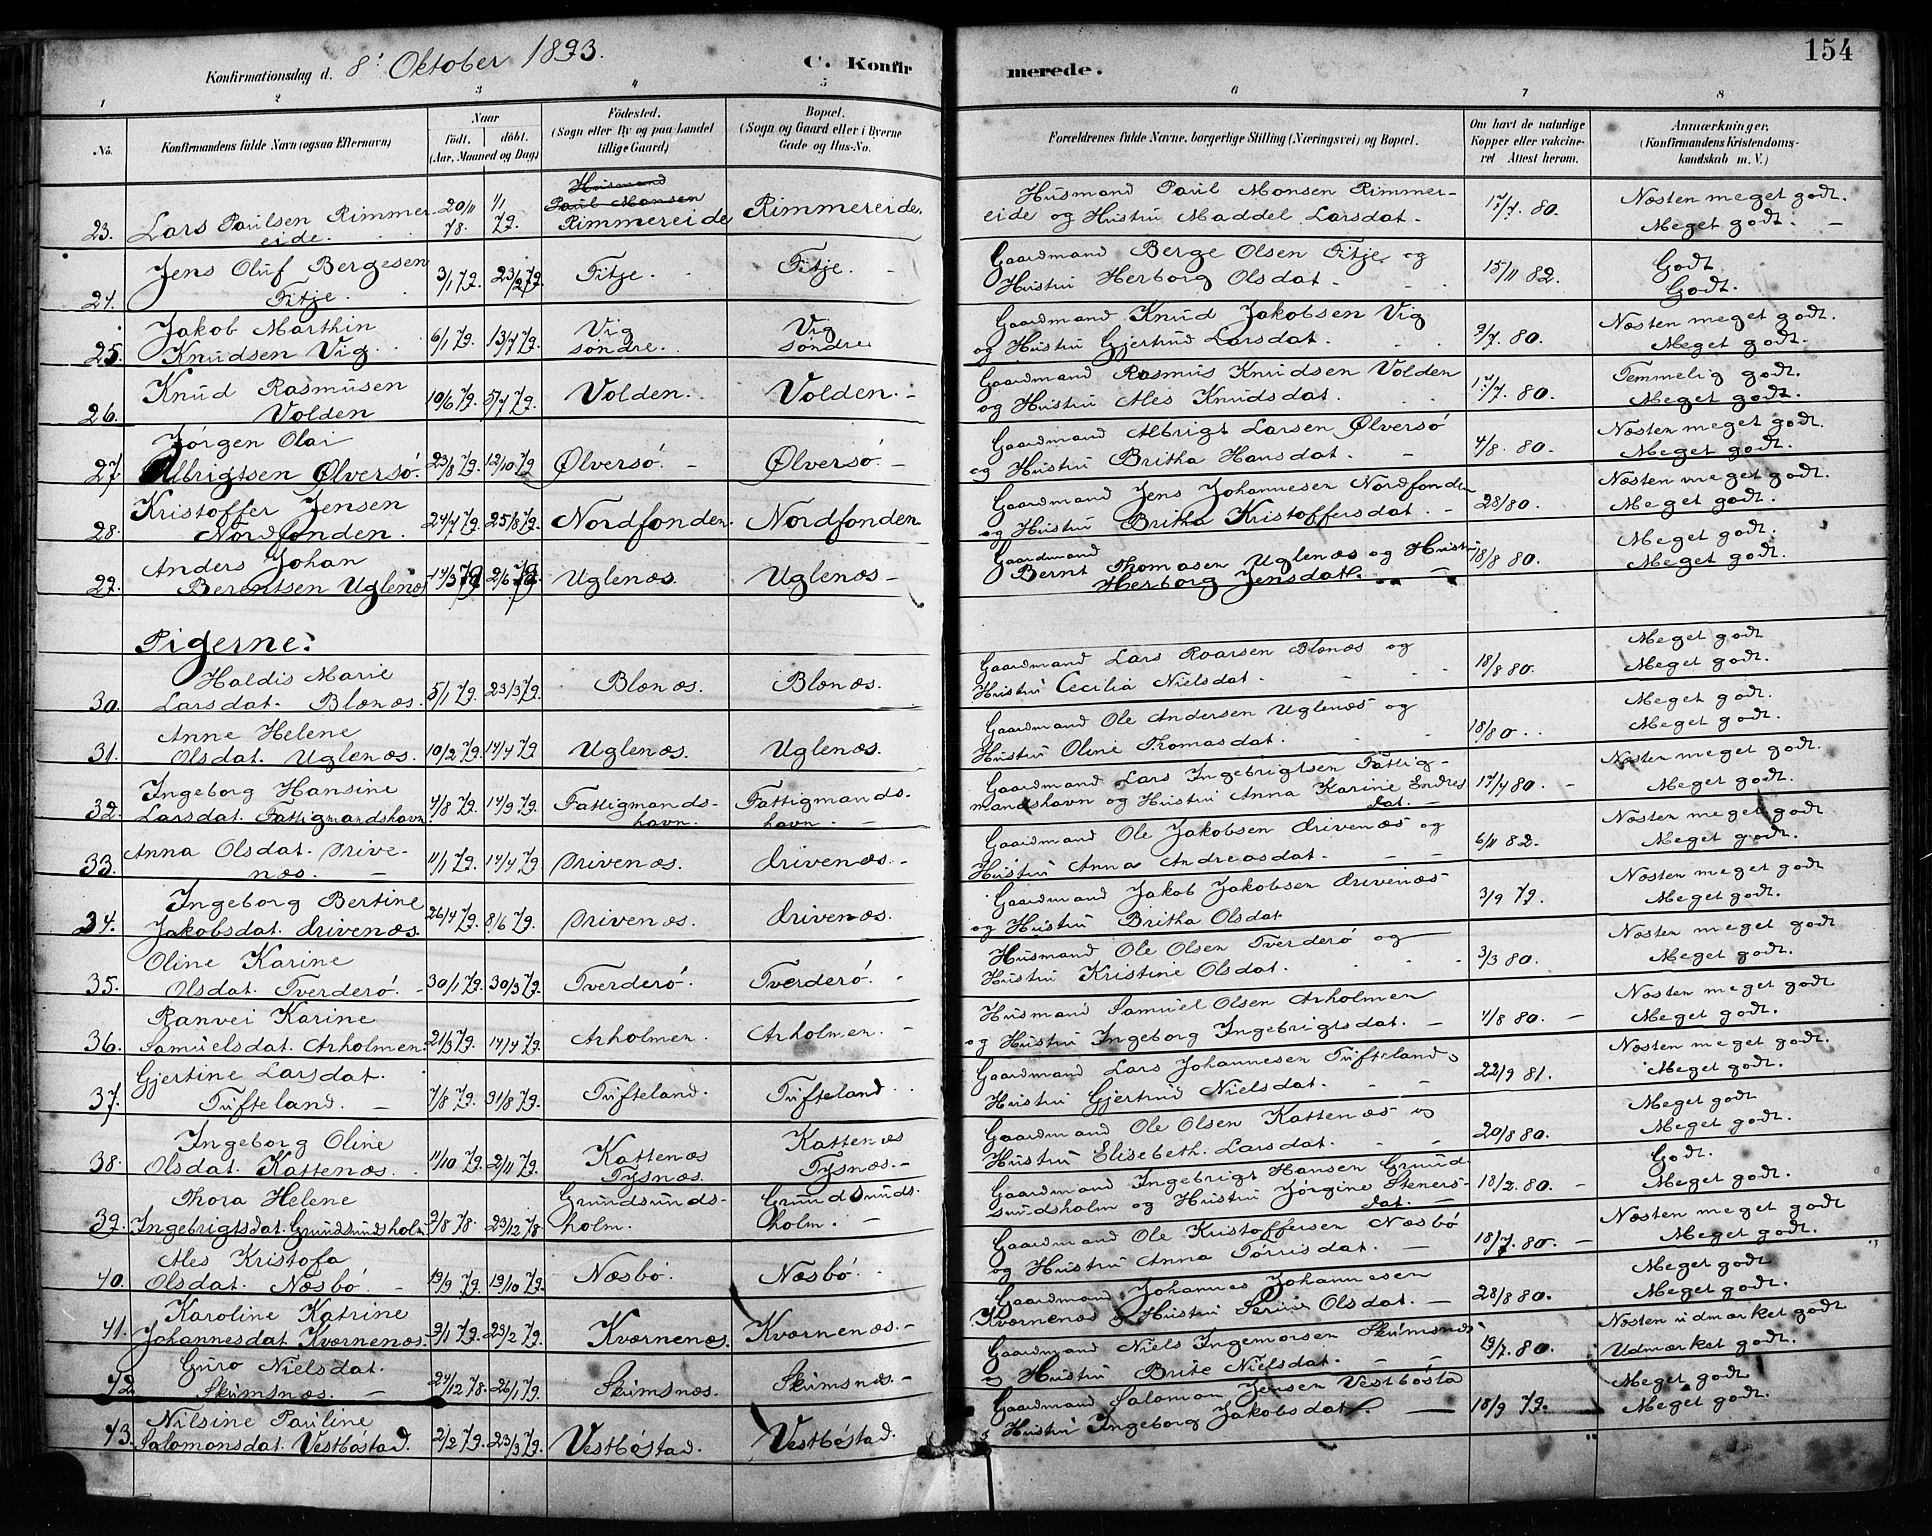 154
Konfirmationsdag d. 8' Oktober 1893.
C. Konfirmerede.
1 2 3 4 5 6 7 8
No. Konfirmandens fulde Navn (ogsaa Efternavn) Naar Født. døbt. (Aar, Maaned og Dag) Fødested. (Sogn eller By og paa Landet tillige Gaard) Bopæl. (Sogn og Gaard eller i Byerne Gade og Hus-No. Forældrenes fulde Navne, borgerlige Stilling (Næringsvei) og Bopæl. Om havt de naturlige Kopper eller vakcineret Attest herom. Anmærkninger, (Konfirmandens Kristendomskundskab m. V.)
Husmand Paul Monsen
23. Lars Paulsen Rimmereide. 20/11 78. Rimmereide Rimmereide. Husmand Paul Monsen Rimmereide og Hustru Maddel Larsdat. 17/7. 80. Næsten meget godt. Meget godt.
24. Jens Oluf Bergesen Fitje. 3/1 79. 23/2 79. Fitje. Fitje. Gaardmand Berge Olsen Fitje og Hustru Herborg Olsdat. 15/11 82. Godt Godt.
25. Jakob Marthin Knudsen Vig 6/1 79. 13/7 79. Vig søndre. Vig søndre Gaardmand Knud Jakobsen Vig og Hustru Gjertrud Larsdat. 9/7. 80. Næsten meget godt. Meget godt.
26. Knud Rasmusen Volden 10/6 79. 5/7 79. Volden. Volden. Gaardmand Rasmus Knudsen Volden og Hustru Ales Knudsdat. 17/7. 80. Temmelig godt. Meget godt.
27. Jørgen Olai Albrigtsen Ølversø. 23/8 79. 12/10 79 Ølversø. Ølversø. Gaardmand Albrigt Larsen Ølversø og Hustru Britha Hansdat. 4/8. 80. Næsten meget godt. Meget godt.
28. Kristoffer Jensen Nordfonden. 24/7 79. 25/8 79. Nordfonden. Nordfonden. Gaardmand Jens Johannesen Nordfonden og Hustru Britha Kristoffersdat. 28/80. Næsten meget godt. Meget godt.
29. Anders Johan Berentsen Uglenæs 14/3 79 2/6 79. Uglenæs. Uglenæs Gaardmand Bernt Thomasen Uglenæs og Hustru Herborg Jensdat. 18/8 80. Meget godt. Meget godt.
Pigerne:
30. Haldis Marie Larsdat. Blænæs. 5/1 79. 23/3 79. Blænæs. Blænæs. Gaardmand Lars Roarsen Blænæs og Hustru Cecilia Nielsdat. 18/8 80. Meget godt Meget godt.
31. Anne Helene Olsdat. Uglenæs. 10/2 79. 14/4 79 Uglenæs. Uglenæs. Gaardmand Ole Andersen Uglenæs og Hustru Oline Thomasdat. 18/80. Meget godt. Meget godt.
32. Ingeborg Hansine Larsdat. Fattigmandshavn. 4/8 79. 14/9 79. Fattigmandshavn. Fattigmandshavn. Gaardmand Lars Ingebrigtsen Fattigmandshavn og Hustru Anna Karine Endresdat. 17/4 80. Næsten meget godt. Meget godt.
33. Anna Olsdat. Drivenæs. 11/1 79. 14/4 79. Drivenæs. Drivenæs. Gaardmand Ole Jakobsen Drivenæs og Hustru Anna Andreasdat. 6/11 82. Næsten meget godt. Meget godt.
34. Ingeborg Bertine Jakobsdat. Drivenæs. 26/4 79. 8/6 79. Drivenæs. Drivenæs. Gaardmand Jakob Jakobsen Drivenæs og Hustru Britha Olsdat 3/9 79. Næsten meget godt Meget godt.
35. Oline Karine Olsdat. Tverderø. 30/1 79. 30/3 79. Tverderø. Tverderø. Husmand Ole Olsen Tverderø og Hustru Kristine Olsdat. 3/3 80. Næsten meget godt Meget godt.
36. Ranvei Karine Samuelsdat. Arholmen. 21/3 79. 14/4 79. Arholmen. Arholmen. Husmand Samuel Olsen Arholmen og Hustru Ingeborg Ingebrigtsdat. 4/8 80. Næsten meget godt Meget godt.
37. Gjertine Larsdat. Tufteland. 7/8 79. 31/8 79. Tufteland. Tufteland Gaardmand Lars Johannesen Tufteland og Hustru Gjertrud Nielsdat. 22/9 81. Næsten meget godt. Meget godt.
38. Ingeborg Oline Olsdat. Kattenæs. 11/10 79. 2/11 79. Kattenæs Tysnæs. Kattenæs Tysnæs. Gaardmand Ole Olsen Kattenæs og Hustru Elisebeth Larsdat. 20/8 80. Meget godt Meget godt.
39. Thora Helene Ingebrigtsdat. Grundsundsholm 3/8 78. 23/12 78. Grundsundsholm. Grundsundsholm. Gaardmand Ingebrigt Hansen Grundsundsholm og Hustru Jørgine Stenersdat. 18/2. 80. Godt. Meget godt.
40. Ales Kristofa Olsdat. Næsbø. 13/9 79. 19/10 79. Næsbø. Næsbø. Gaardmand Ole Kristoffersen Næsbø og Hustru Anna Tørrisdat. 18/7. 80. Næsten meget godt Meget godt.
41. Karoline Katrine Johannesdat Kværnenæs. 9/1 79. 23/2 79. Kværnenæs. Kværnenæs. Gaardmand Johannes Johannesen Kværnenæs og Hustru Serine Olsdat. 28/8 80. Meget godt Meget godt.
42 Guro Nielsdat. Skumsnæs. 24/12 78. 26/1 79. Skumsnæs. Skumsnæs. Gaardmand Niels Ingemorsen Skumsnæs og Hustru Brite Nielsdat. 19/7. 80. Næsten udmærket godt Udmærket godt.
43. Nilsine Pauline Salomonsdat. Vestbøstad. 2/2 79. 23/3 79. Vestbøstad. Vestbøstad. Gaardmand Salomon Jensen Vestbøstad og Hustru Ingeborg Jakobsdat. 18/9 79. Meget godt Meget godt.